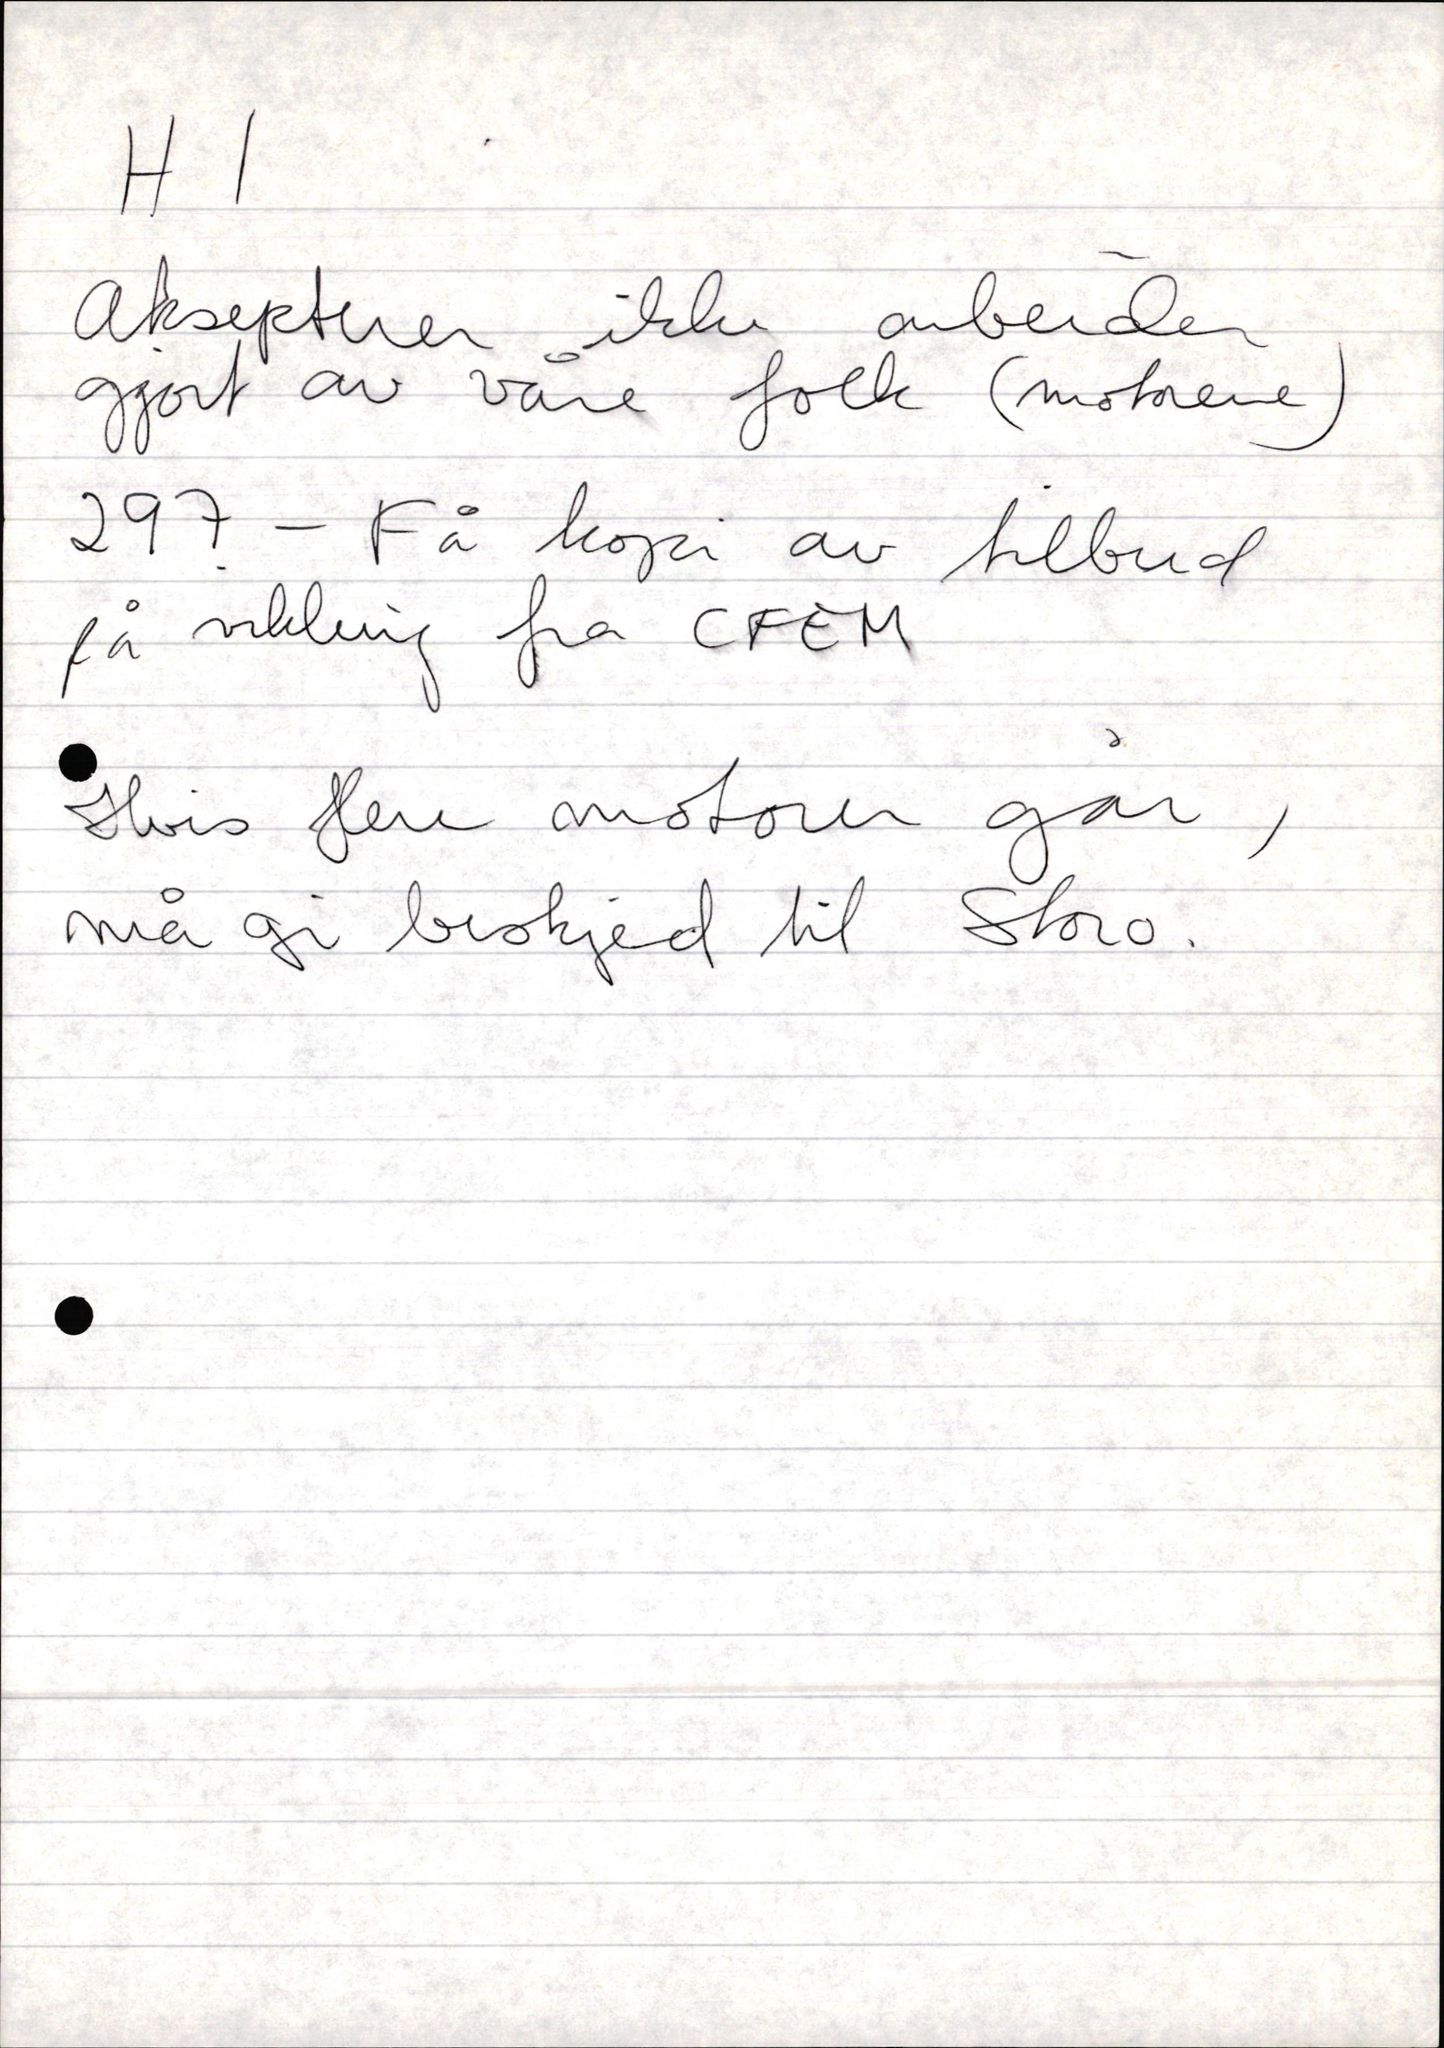 H 1
Aksepterer ikke arbeider
gjort av våre folk (motorene)
297 - Få kopi av tilbud
på vikling fra CFEM
Hvis flere motorer går,
må gi beskjed til Storo.